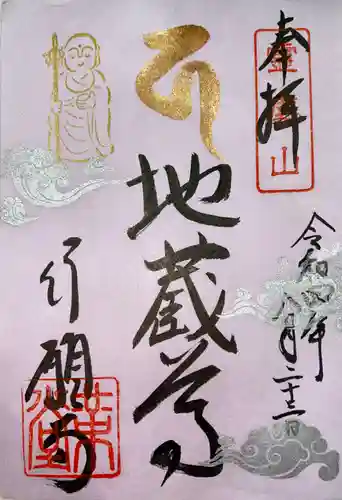 奉拝
令和四年
八月二十二日
ह
地蔵尊
行願寺